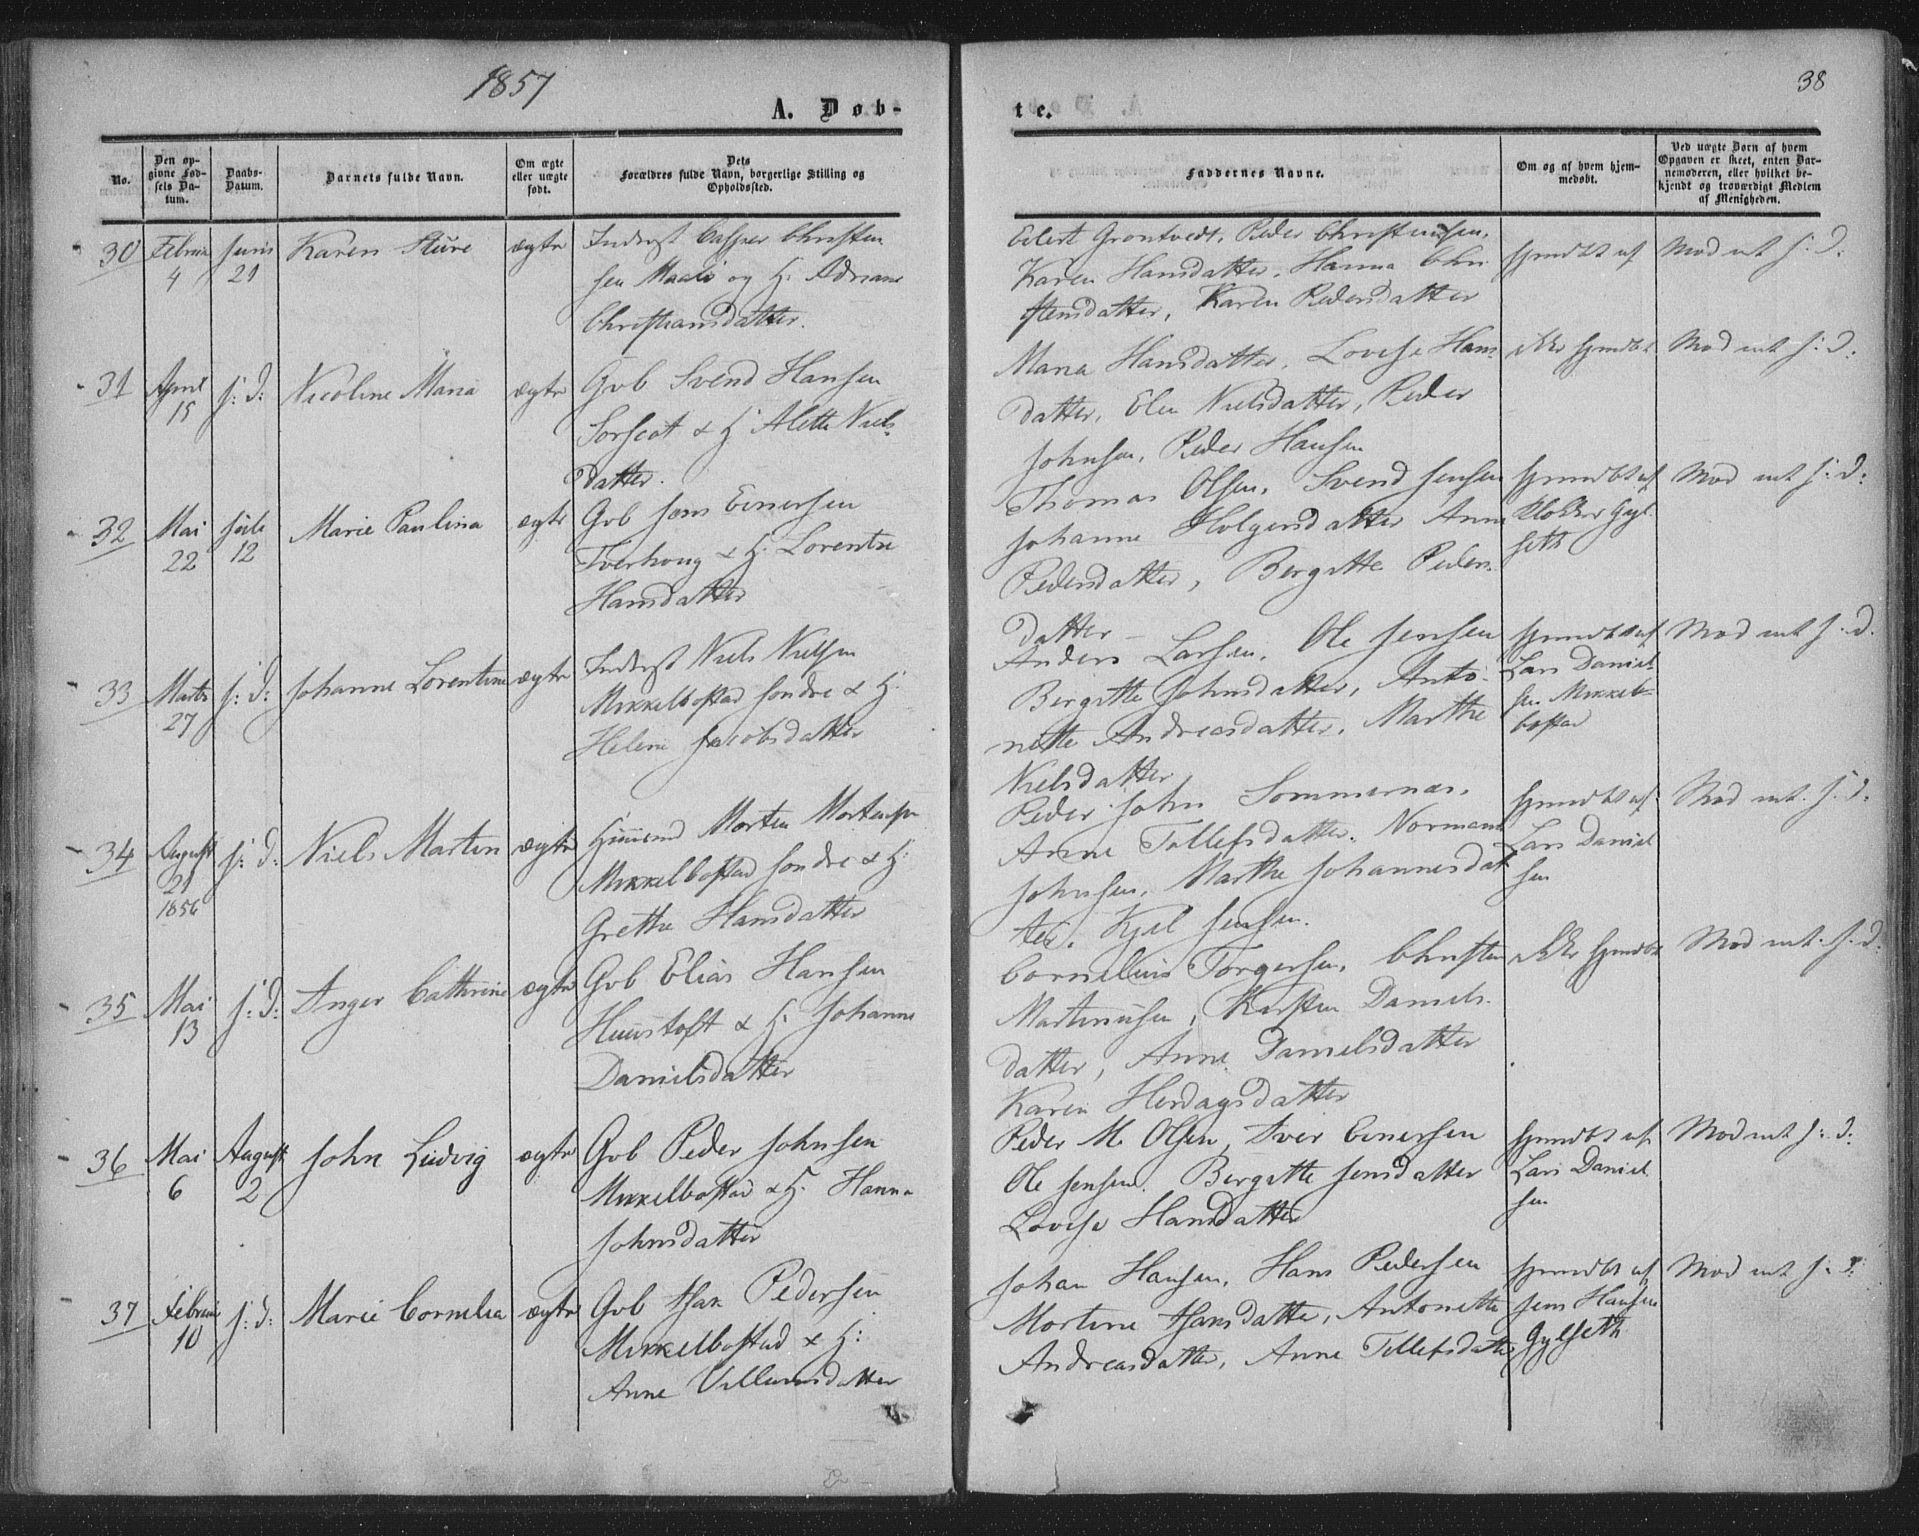 1857
38
A. Døb-
te.
No.
Den op-
givne Fød-
sels Da-
tum.
Daabs-
Datum.
Barnets fulde Navn.
Om ægte
eller uægte
født.
Dets
Forældres fulde Navn, borgerlige Stilling og
Opholdssted.
Faddernes Navne.
Om og af hvem hjem-
medøbt.
Ved uægte Børn af hvem
Opgaven er skeet, enten Bar-
nemoderen, eller hvilket be-
kjendt og troværdigt Medlem
af Menigheden.
30
Februar
4
Junis
21
Karen Sture
ægte
Inderst Casper Christen
sen og H: Adriane
Christiansdatter.
Eilert Grøntvedt, Peder Christensen,
Karen Hansdatter, Hanna Chri
stensdatter, Karen Pedersdatter
hjemdbt af Mod
31
April
15
s: D:
Nicoline Maria
ægte
Gvb Svend Hansen
Sorfeat & H: Alette Niels-
datter.
Maria Hansdatter, Lovise Hans
datter, Elen Nielsdatter, Peder
Johnsen, Peder Hansen
ikke hjemdbt
Mod int s: D:
32
Mai
22
Juli
12
Marie Paulina
ægte
Gvb Jens Einersen
Tverhoug & H: Lorentse
Hansdatter
Thomas Olsen, Svend Jensen
Johanne Holgersdatter Anne
Pedersdatter, Bergitte Peders-
datter –
hjemdbt af
Klokker Gyl-
seth
Mod int s: D:
33
Marts
27
s: D:
Johanne Lorentine
ægte
Inderst Niels Nielsen
Mikkelbostad søndre & H:
Helene Jacobsdatter
Anders Larsen, Ole Jensen
Bergitte Johnsdatter, Anto-
nette Andreasdatter, Marthe
Nielsdatter
hjemdbt af
Lars Daniel-
sen Mikkel-
bostad
Mod int s: D.
34
August
21
1856
s: D:
Niels Martin
ægte
Huusmd Morten Mortensen
Mikkelbostad søndre & H:
Grethe Hansdatter
Peder John Sommernæs,
Anne Tollefsdatter, Normann
Johnsen, Marthe Johannesdat
ter, Kjel Jensen.
hjemdbt af
Lars Daniel
sen
Mod int. s: D:
35
Mai
13
s: D:
Inger Cathrine
ægte
Gvb Elias Hansen
Huustoft & H: Johanne
Danielsdatter
Cornelius Torgersen, Christen
Martinusen, Kirsten Daniels-
datter, Anne Danielsdatter
Karen Herdagsdatter
ikke hjemdbt
Mod int. s: D:
36
Mai
6
August
2
John Ludvig
ægte
Gvb Peder Johnsen
Mikkelbostad & H: Hanna
Johnsdatter
Peder M. Olsen, Iver Einersen
Ole Jensen. Bergitte Jensdatter
Lovise Hansdatter
hjemdbt af
Lars Daniel
sen
Mod int s: D:
37
Februar
10
s: D:
Marie Cornelia
ægte
Gvb Isak Pedersen
Mikkelbostad & H:
Anne Villumsdatter
Johan Hansen, Hans Pedersen
Mortine Hansdatter, Antonette
Andreasdatter, Anne Tollefsdatter
hjemdbt af
Jens Hansen
Gylseth
Mod int s: D: